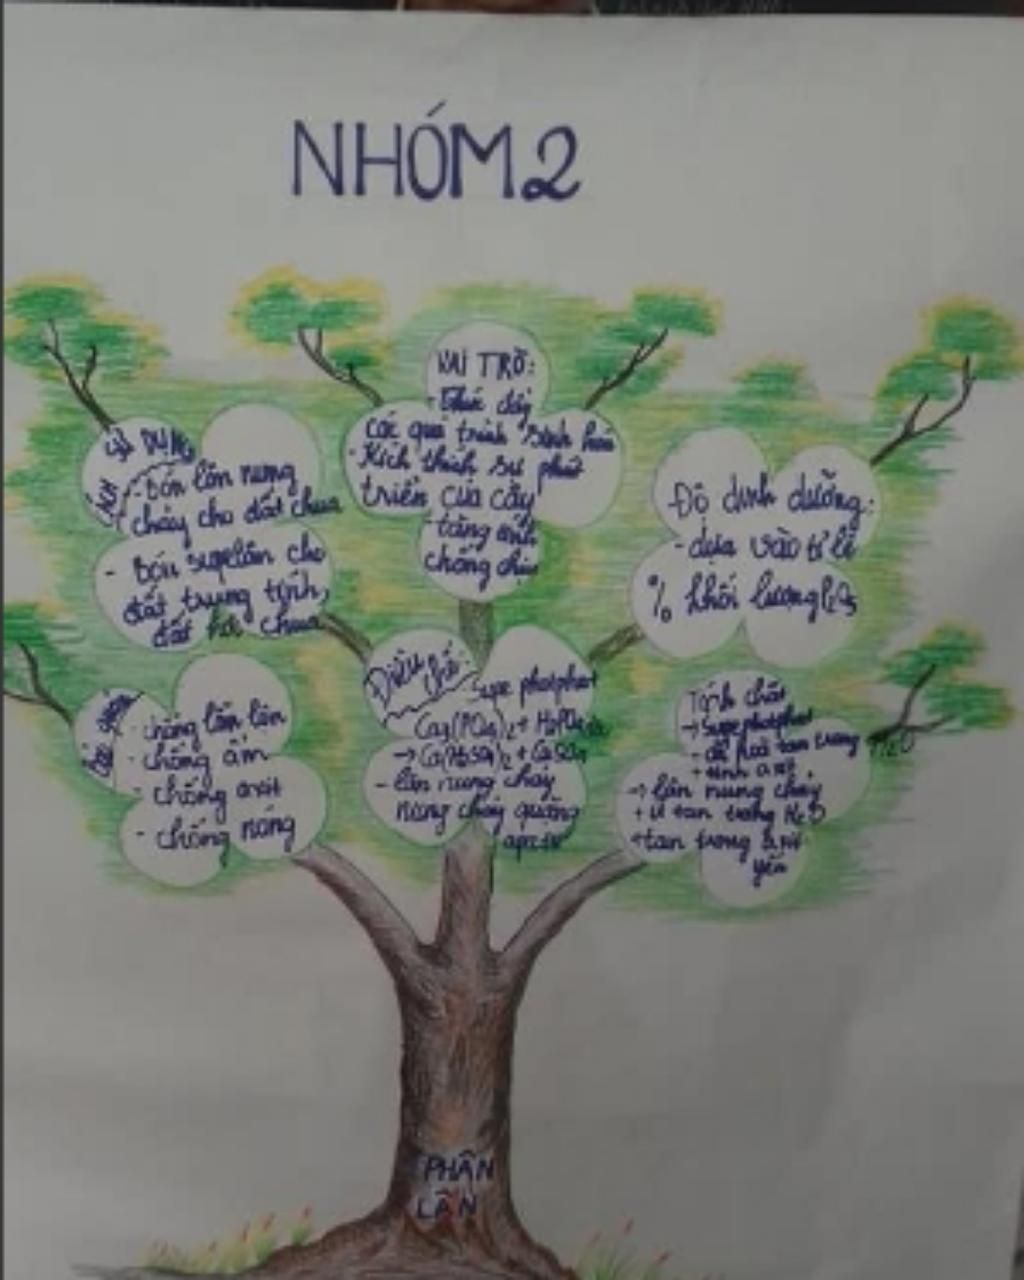 NHÓM 2
VAI TRÒ:
- Thúc đẩy
các quá trình sinh hóa
- Kích thích sự phát
triển của cây
- tăng tính
chống chịu
CÁCH SỬ DỤNG
- Bón lân nung
chảy cho đất chua
- Bón supe lân cho
đất trung tính,
đất ít chua
Độ dinh dưỡng:
- dựa vào tỉ lệ
% khối lượng P₂O₅
- chống lẫn lộn
- chống ẩm
- chống axit
- chống nóng
Điều chế:
- supe photphat
Ca₃(PO₄)₂ + H₂SO₄
- lân nung chảy
nung chảy quặng
apatit
Tính chất
→ supe photphat
- dễ hoà tan trong H₂O
+ tính axit
→ lân nung chảy
+ ít tan trong H₂O
+ tan trong axit
yếu
PHÂN
LÂN